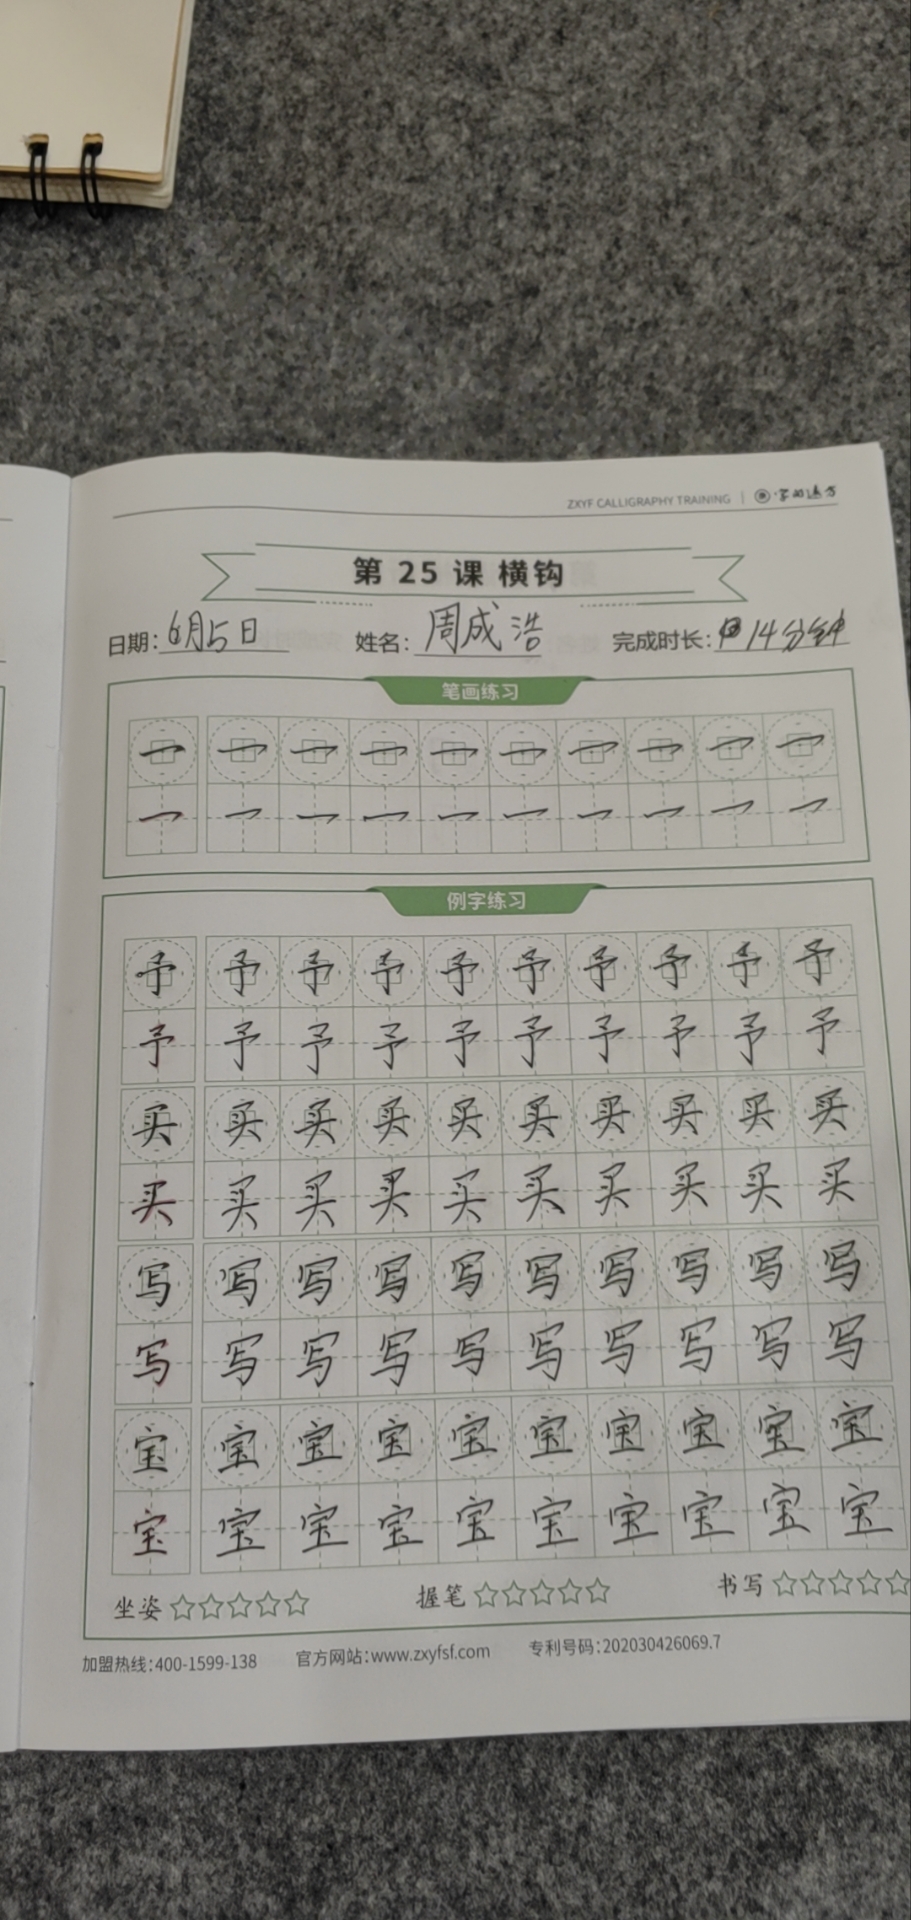 ZXYF CALLIGRAPHY TRAINING
第 25 课 横钩
日期：6月5日 姓名：周成浩 完成时长：14分钟
笔画练习
例字练习
予 予 予 予 予 予 予 予 予 予
予 予 予 予 予 予 予 予 予 予
买 买 买 买 买 买 买 买 买 买
买 买 买 买 买 买 买 买 买 买
写 写 写 写 写 写 写 写 写 写
写 写 写 写 写 写 写 写 写 写
宝 宝 宝 宝 宝 宝 宝 宝 宝 宝
宝 宝 宝 宝 宝 宝 宝 宝 宝 宝
坐姿☆☆☆☆☆ 握笔☆☆☆☆☆ 书写☆☆☆☆☆
加盟热线：400-1599-138 官方网站：www.zxyfsf.com 专利号码：202030426069.7